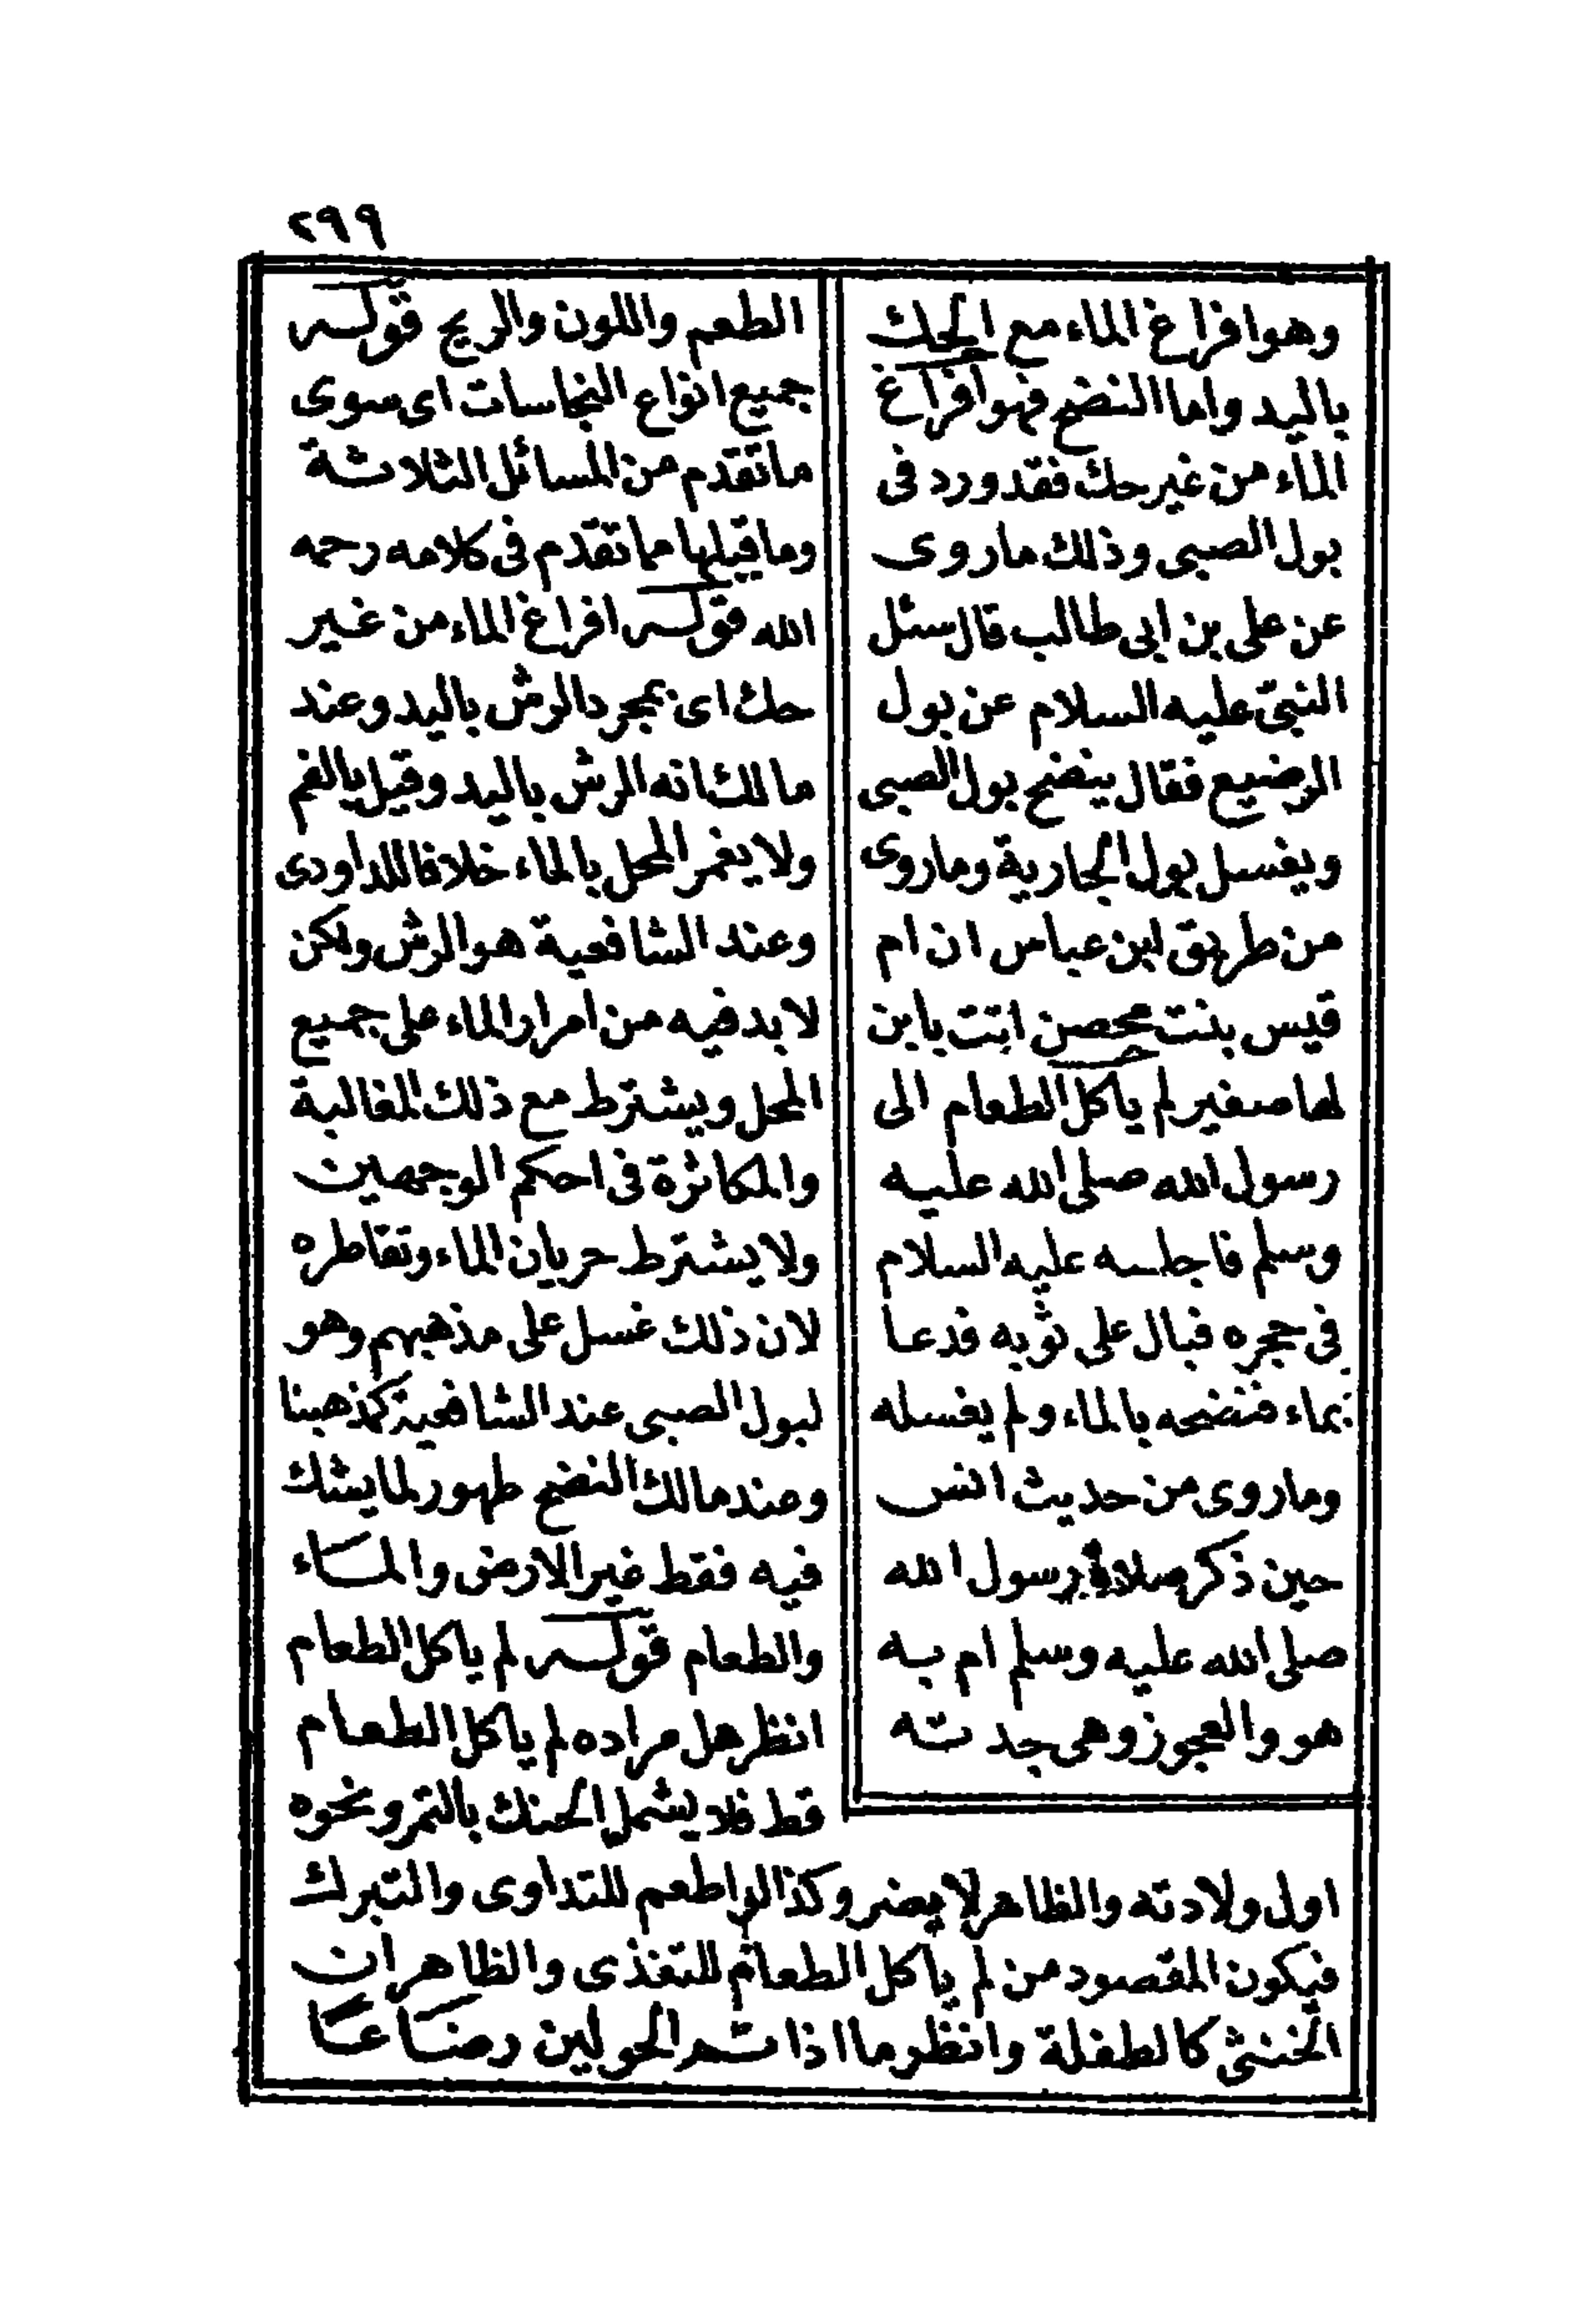 ٢٩٩
وهو افراغ الماء مع الحك
باليد واما النضح فهو افراغ
الماء من غير حك فقد ورد فى
بول الصبى وذلك ماروى
عن على بن ابى طالب قال سئل
النبى عليه السلام عن بول
الرضيع فقال ينضح بول الصبى
ويغسل بول الجارية وماروى
من طريق ابن عباس ان ام
قيس بنت محصن اتت بابن
لها صغير لم ياكل الطعام الى
رسول الله صلى الله عليه
وسلم فاجلسه عليه السلام
فى حجره فبال على ثوبه فدعا
بماء فنضحه بالماء ولم يغسله
وماروى من حديث انس
حين ذكر صلاة رسول الله
صلى الله عليه وسلم ام به
هو والعجوز وهى جدته
الطعم واللون والريح قوله
جميع انواع النجاسات اى سوى
ماتقدم من المسائل الثلاثة
وما قبلها مما تقدم فى كلامه رحمه
الله قوله افراغ الماء من غير
حك اى بمجرد الرش باليد وعند
مالك انه الرش باليد وقيل بالفم
ولا يغمر المحل بالماء خلافا للداودى
وعند الشافعية هو الرش ولكن
لا بد فيه من امرار الماء على جميع
المحل ويشترط مع ذلك المغالبة
والمكاثرة فى احكم الوجهين
ولا يشترط جريان الماء وتقاطره
لان ذلك غسل على مذهبهم وهو
لبول الصبى عند الشافعية كمذهبنا
وعند مالك النضح طهور لما يشك
فيه فقط غير الارض والماء
والطعام قوله لم ياكل الطعام
انظر هل مراده لم ياكل الطعام
قط فلا يشمل الحنك بالتمر ونحوه
اول ولادته والظاهر لا يضر وكذا لو اطعم للتداوى والتبرك
فيكون المقصود من لم ياكل الطعام للتغذى والظاهر ان
الخنثى كالطفلة وانظر ما اذا تم الحولين رضاعا